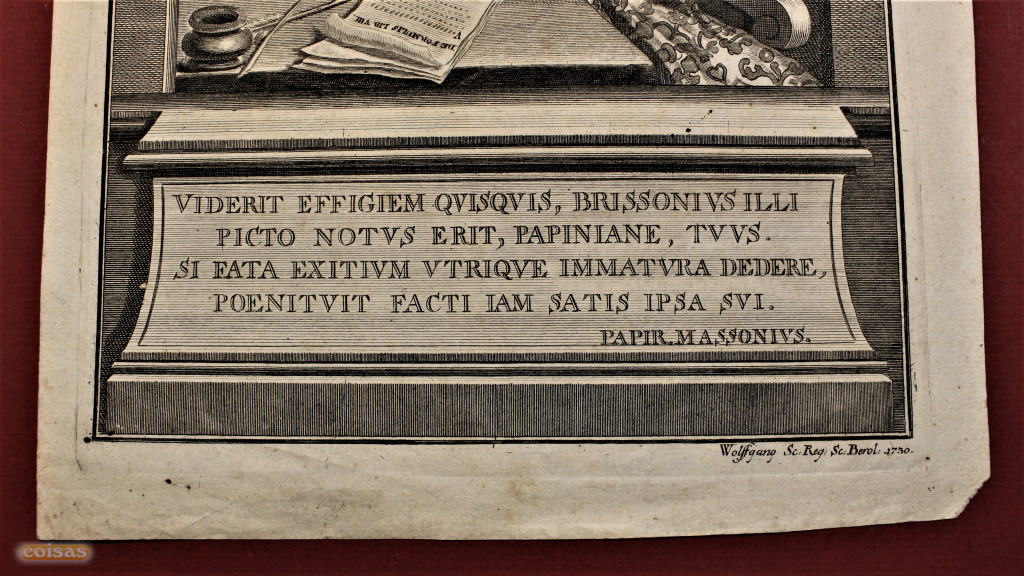 DE FORMULIS LIB VIII.
VIDERIT EFFIGIEM QVISQVIS, BRISSONIVS ILLI
PICTO NOTVS ERIT, PAPINIANE, TVVS.
SI FATA EXITIVM VTRIQVE IMMATVRA DEDERE,
POENITVIT FACTI IAM SATIS IPSA SVI.
PAPIR. MASSONIVS.
Wolffgang Sc. Reg. Sc. Berol. 1730.
coisas